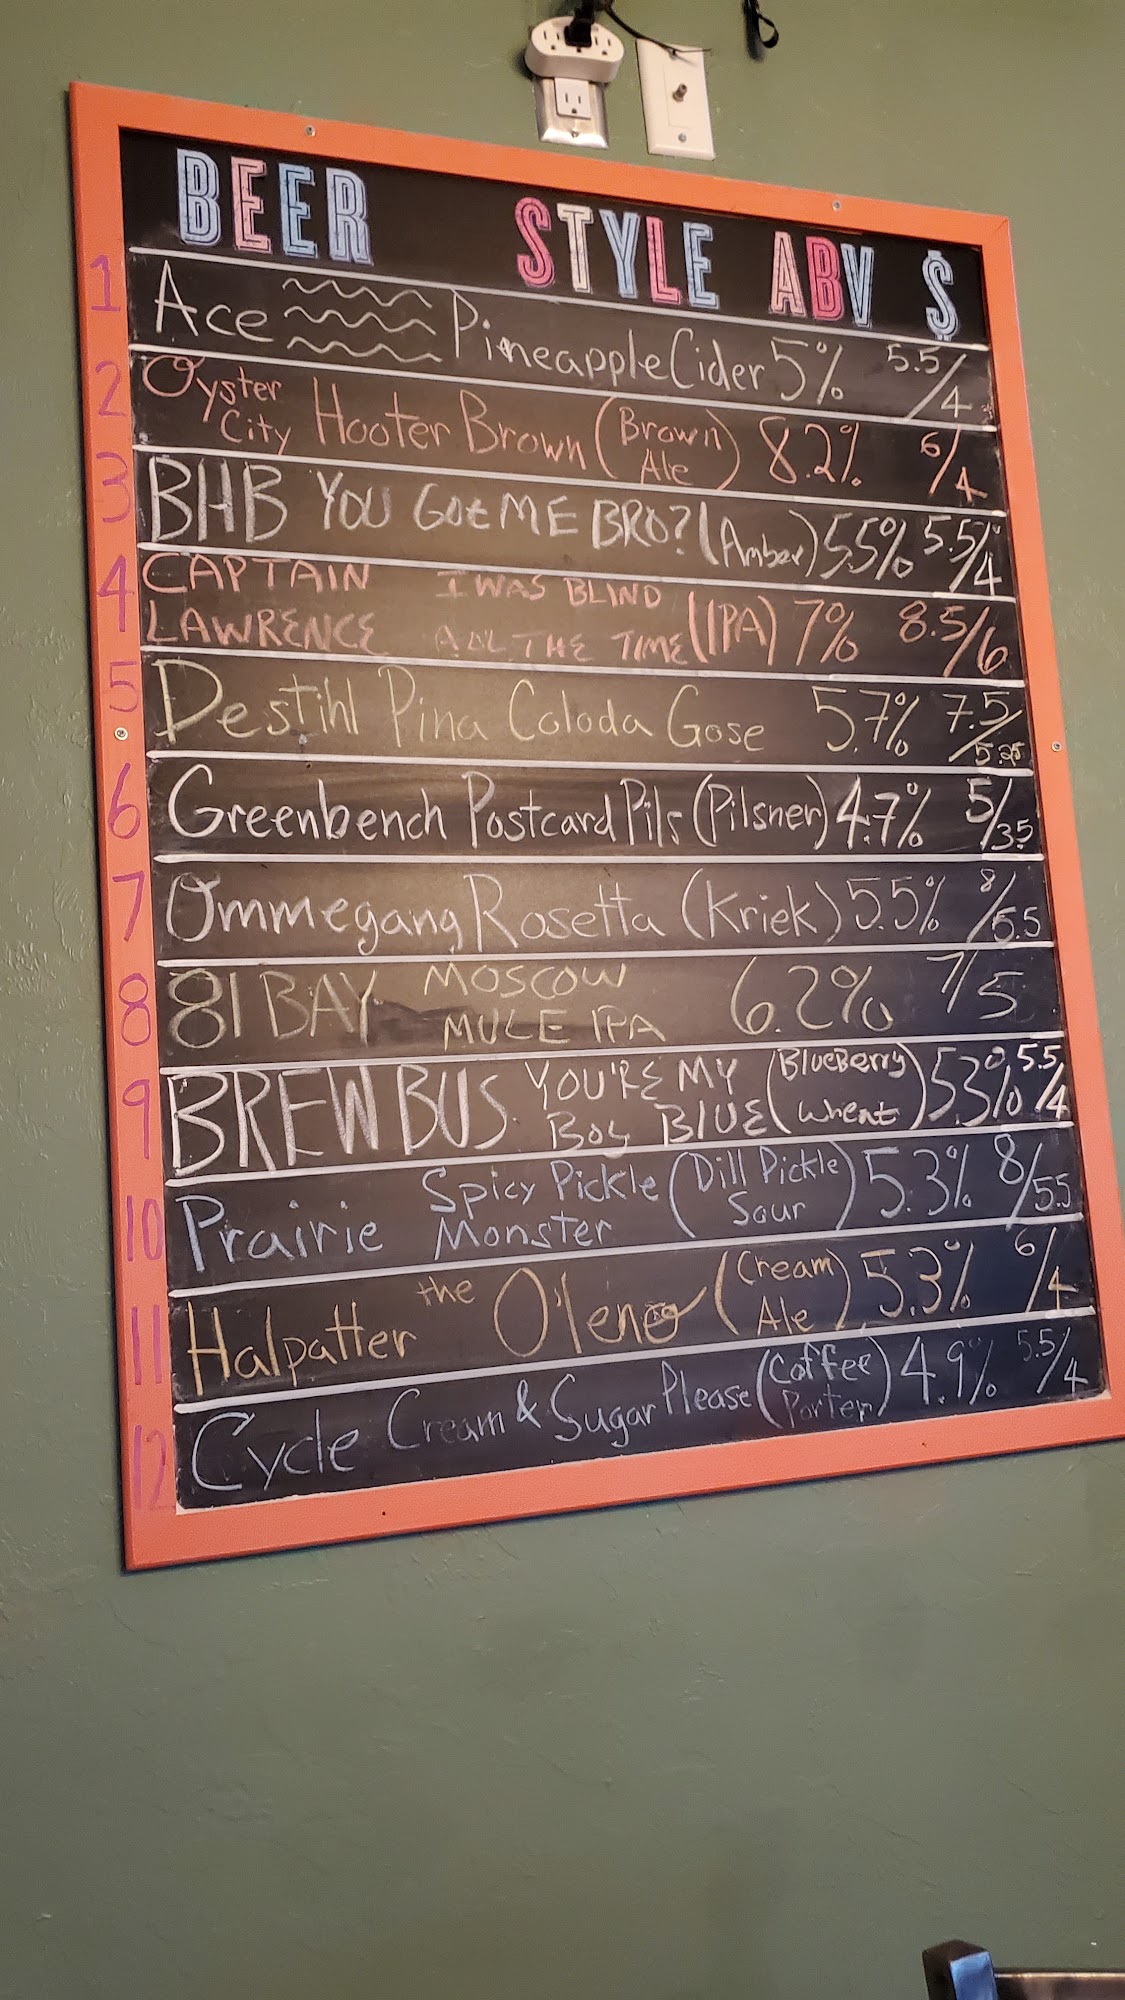 BEER STYLE ABV $
1 Ace Pineapple Cider 5% 5.5/4
2 Oyster City Hooter Brown (Brown Ale) 8.2% 6/4
3 BHB YOU GOt ME BRO? (Amber) 5.5% 5.5/4
4 CAPTAIN LAWRENCE I WAS BLIND ALL THE TIME (IPA) 7% 8.5/6
5 Destihl Pina Coloda Gose 5.7% 7.5/5.25
6 Greenbench Postcard Pils (Pilsner) 4.7% 5/3.5
7 Ommegang Rosetta (Kriek) 5.5% 8/5.5
8 81 BAY MOSCOW MULE IPA 6.2% 7/5
9 BREW BUS YOU'RE MY BOy BLUE (BlueBerry Wheat) 5.3% 5.5/4
10 Prairie Spicy Pickle Monster (Dill Pickle Sour) 5.3% 8/5.5
11 Halpatter the O'leno (Cream Ale) 5.3% 6/4
12 Cycle Cream & Sugar Please (Coffee Porter) 4.9% 5.5/4